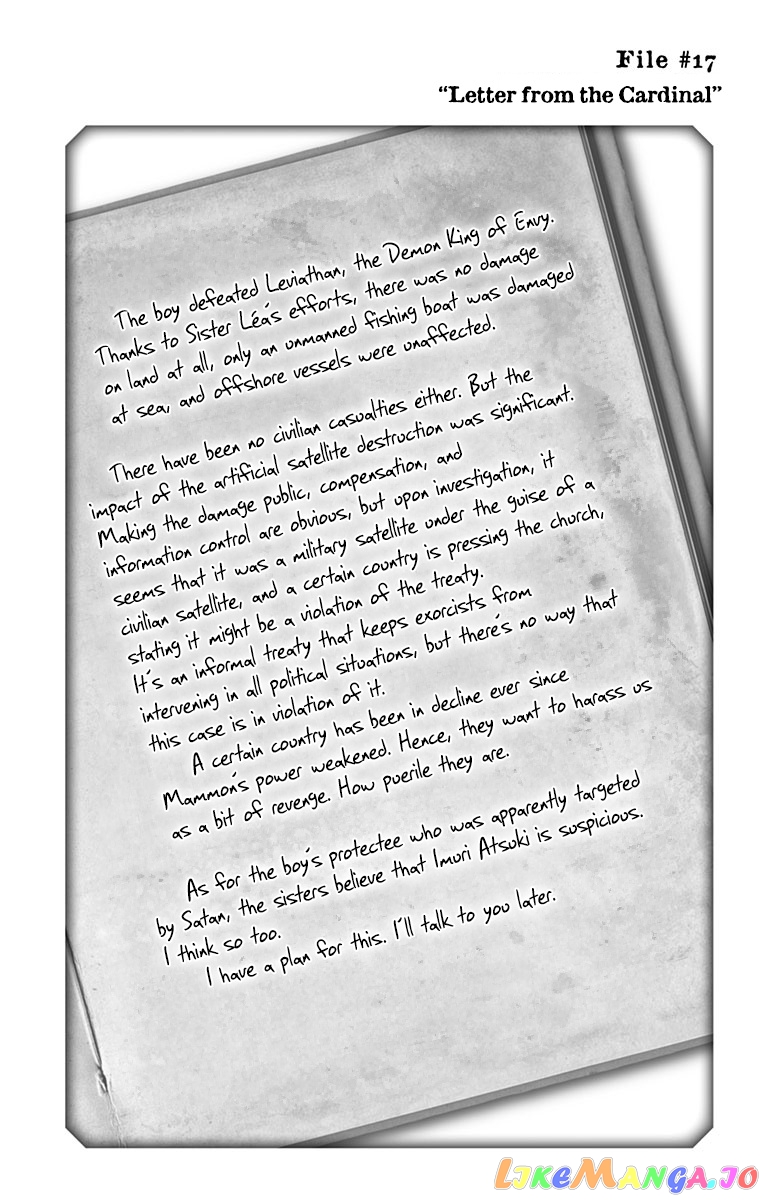 File #17
“Letter from the Cardinal”
The boy defeated Leviathan, the Demon King of Envy.
Thanks to Sister Léa's efforts, there was no damage
on land at all, only an unmanned fishing boat was damaged
at sea, and offshore vessels were unaffected.
There have been no civilian casualties either. But the
impact of the artificial satellite destruction was significant.
Making the damage public, compensation, and
information control are obvious, but upon investigation, it
seems that it was a military satellite under the guise of a
civilian satellite, and a certain country is pressing the church,
stating it might be a violation of the treaty.
It's an informal treaty that keeps exorcists from
intervening in all political situations, but there's no way that
this case is in violation of it.
A certain country has been in decline ever since
Mammon's power weakened. Hence, they want to harass us
as a bit of revenge. How puerile they are.
As for the boy's protectee who was apparently targeted
by Satan, the sisters believe that Imuri Atsuki is suspicious.
I think so too.
I have a plan for this. I'll talk to you later.
LIKEMANGA.IO